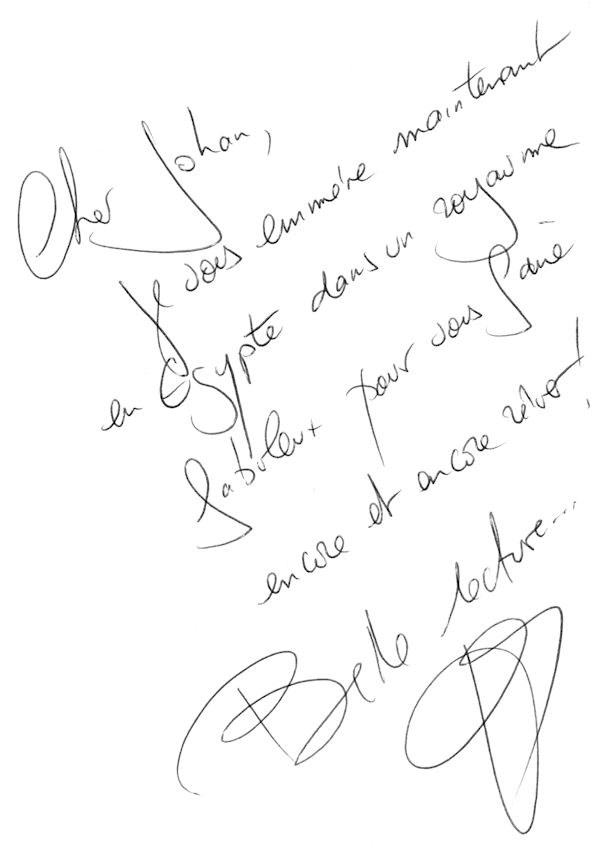 Cher Johan,
Je vous emmène maintenant
en Egypte dans un royaume
fabuleux pour vous faire
encore et encore rêver !
Belle lecture...